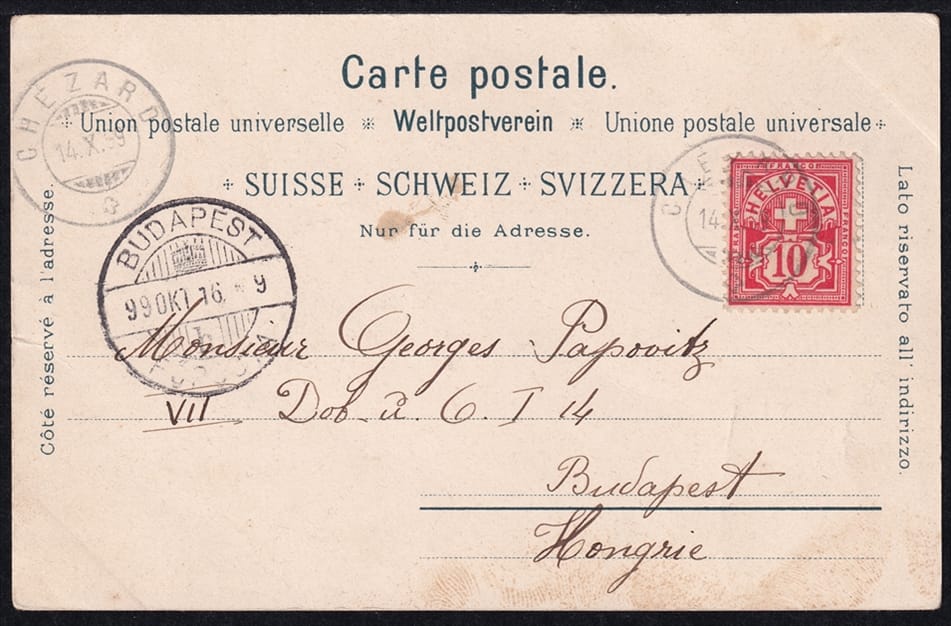 Carte postale.
Union postale universelle * Weltpostverein * Unione postale universale
SUISSE + SCHWEIZ + SVIZZERA
Nur für die Adresse.
CHÉZARD
14.X.99
BUDAPEST
99 OKT 16. 9
FRANCO
FRANCO
FRANCO
HELVETIA
10
14.X.
Côté réservé à l'adresse.
Lato riservato all' indirizzo.
Monsieur Georges Papovitz
VII Dob. u. 6. I 14
Budapest
Hongrie